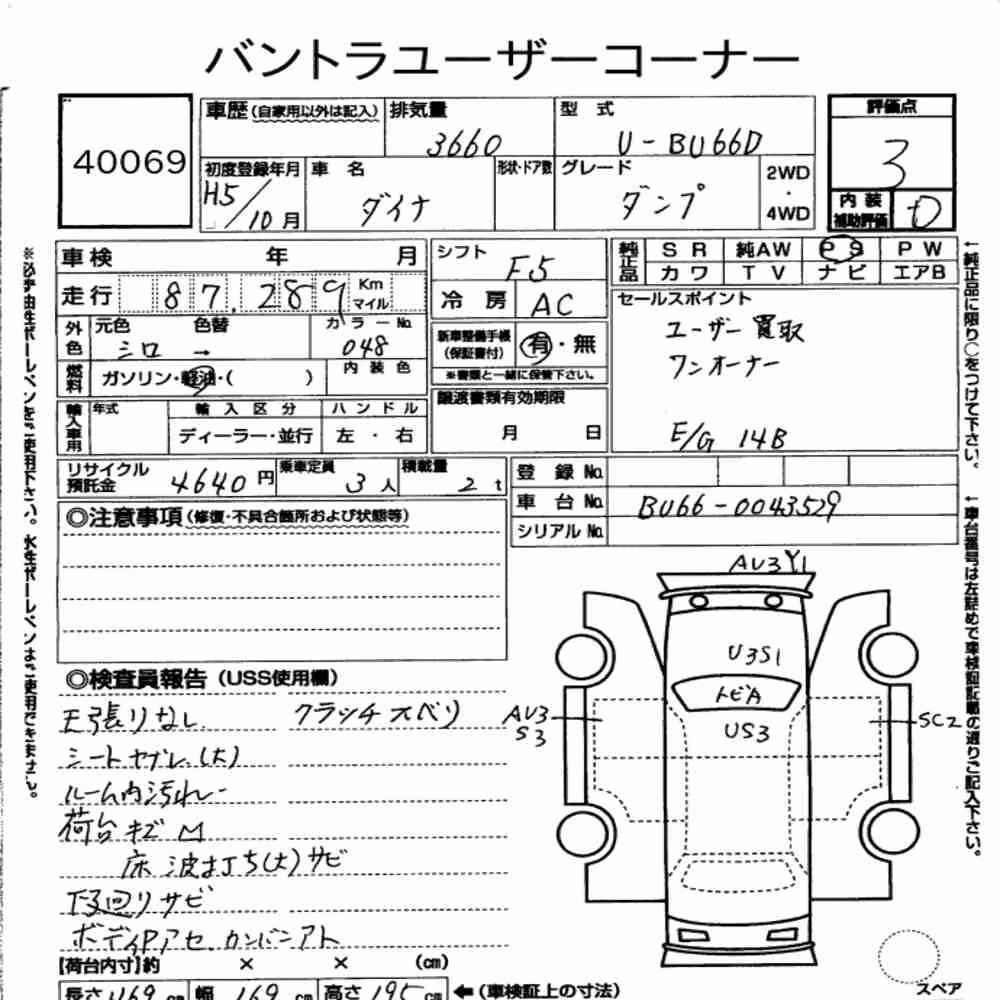 バントラユーザーコーナー
40069
車歴(自家用以外は記入)
排気量
3660
型 式
U-BU66D
評価点
3
初度登録年月
H5/10月
車 名
ダイナ
形状・ドア数
グレード
ダンプ
2WD
・
4WD
内 装
補助評価
D
車検 年 月
シフト
F5
純正品
SR 純AW PS PW
カワ TV ナビ エアB
走行
87,289 Km
マイル
冷 房
AC
セールスポイント
ユーザー買取
ワンオーナー
E/G 14B
外色
元色 色替
シロ →
カラーNo.
048
新車整備手帳
(保証書付)
有・無
※書類と一緒に保管下さい。
燃料
ガソリン・軽油・( )
内 装 色
譲渡書類有効期限
月 日
輸入車用
年式
輸 入 区 分
ハ ン ド ル
ディーラー・並行
左 ・ 右
リサイクル
預託金
4640円
乗車定員
3人
積載量
2t
登 録 No.
車 台 No.
BU66-0043529
シリアルNo.
◎注意事項(修復・不具合箇所および状態等)
◎検査員報告(USS使用欄)
クラッチスベリ
シートヤブレ(大)
ルーム内汚れ
荷台キズM
床波打ち(大)サビ
下回りサビ
カンバンアト
AU3Y1
U3S1
トビA
US3
AU3
S3
SC2
スペア
[荷台内寸]約 × × (cm)
長さ469cm 幅169cm 高さ195cm ←(車検証上の寸法)
※必ず油性ボールペンをご使用下さい。水性ボールペンはご使用できません。
←純正品に限り○をつけて下さい。
←車台番号は左詰めで車検証記載の通りご記入下さい。